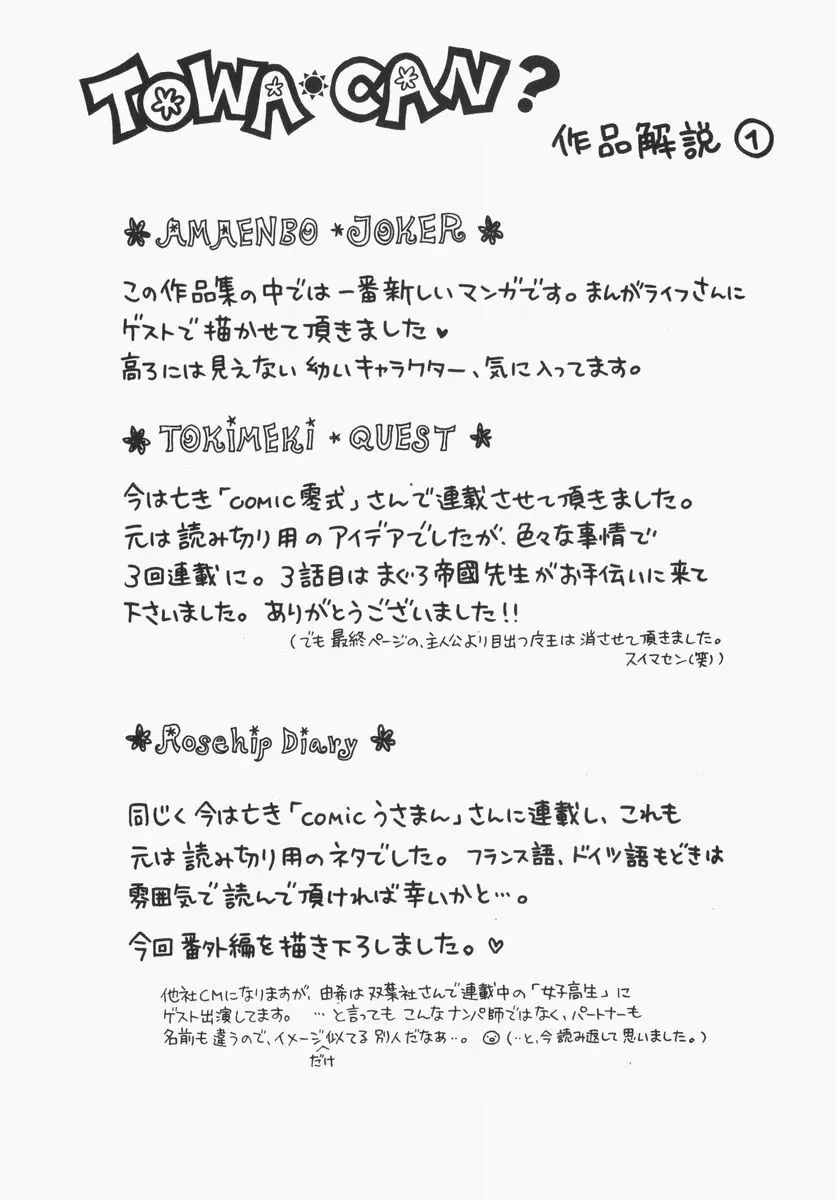 TOWA CAN?
作品解説 ①
AMAENBO * JOKER
この作品集の中では一番新しいマンガです。まんがライフさんに
ゲストで描かせて頂きました♥
高ろには見えない幼いキャラクター、気に入ってます。
TOKiMEKi * QUEST
今は亡き「COMIC零式」さんで連載させて頂きました。
元は読み切り用のアイデアでしたが、色々な事情で
3回連載に。3話目はまぐろ帝國先生がお手伝いに来て
下さいました。ありがとうございました!!
(でも最終ページの、主人公より目出つ皮王は消させて頂きました。
スイマセン(笑))
Rosehip Diary
同じく今は亡き「COMICうさまん」さんに連載し、これも
元は読み切り用のネタでした。フランス語、ドイツ語もどきは
雰囲気で読んで頂ければ幸いかと…。
今回番外編を描き下ろしました。♡
他社CMになりますが、由希は双葉社さんで連載中の「女子高生」に
ゲスト出演してます。…と言ってもこんなナンパ師ではなく、パートナーも
名前も違うので、イメージだけ似てる別人だなあ…。(…と、今読み返して思いました。)